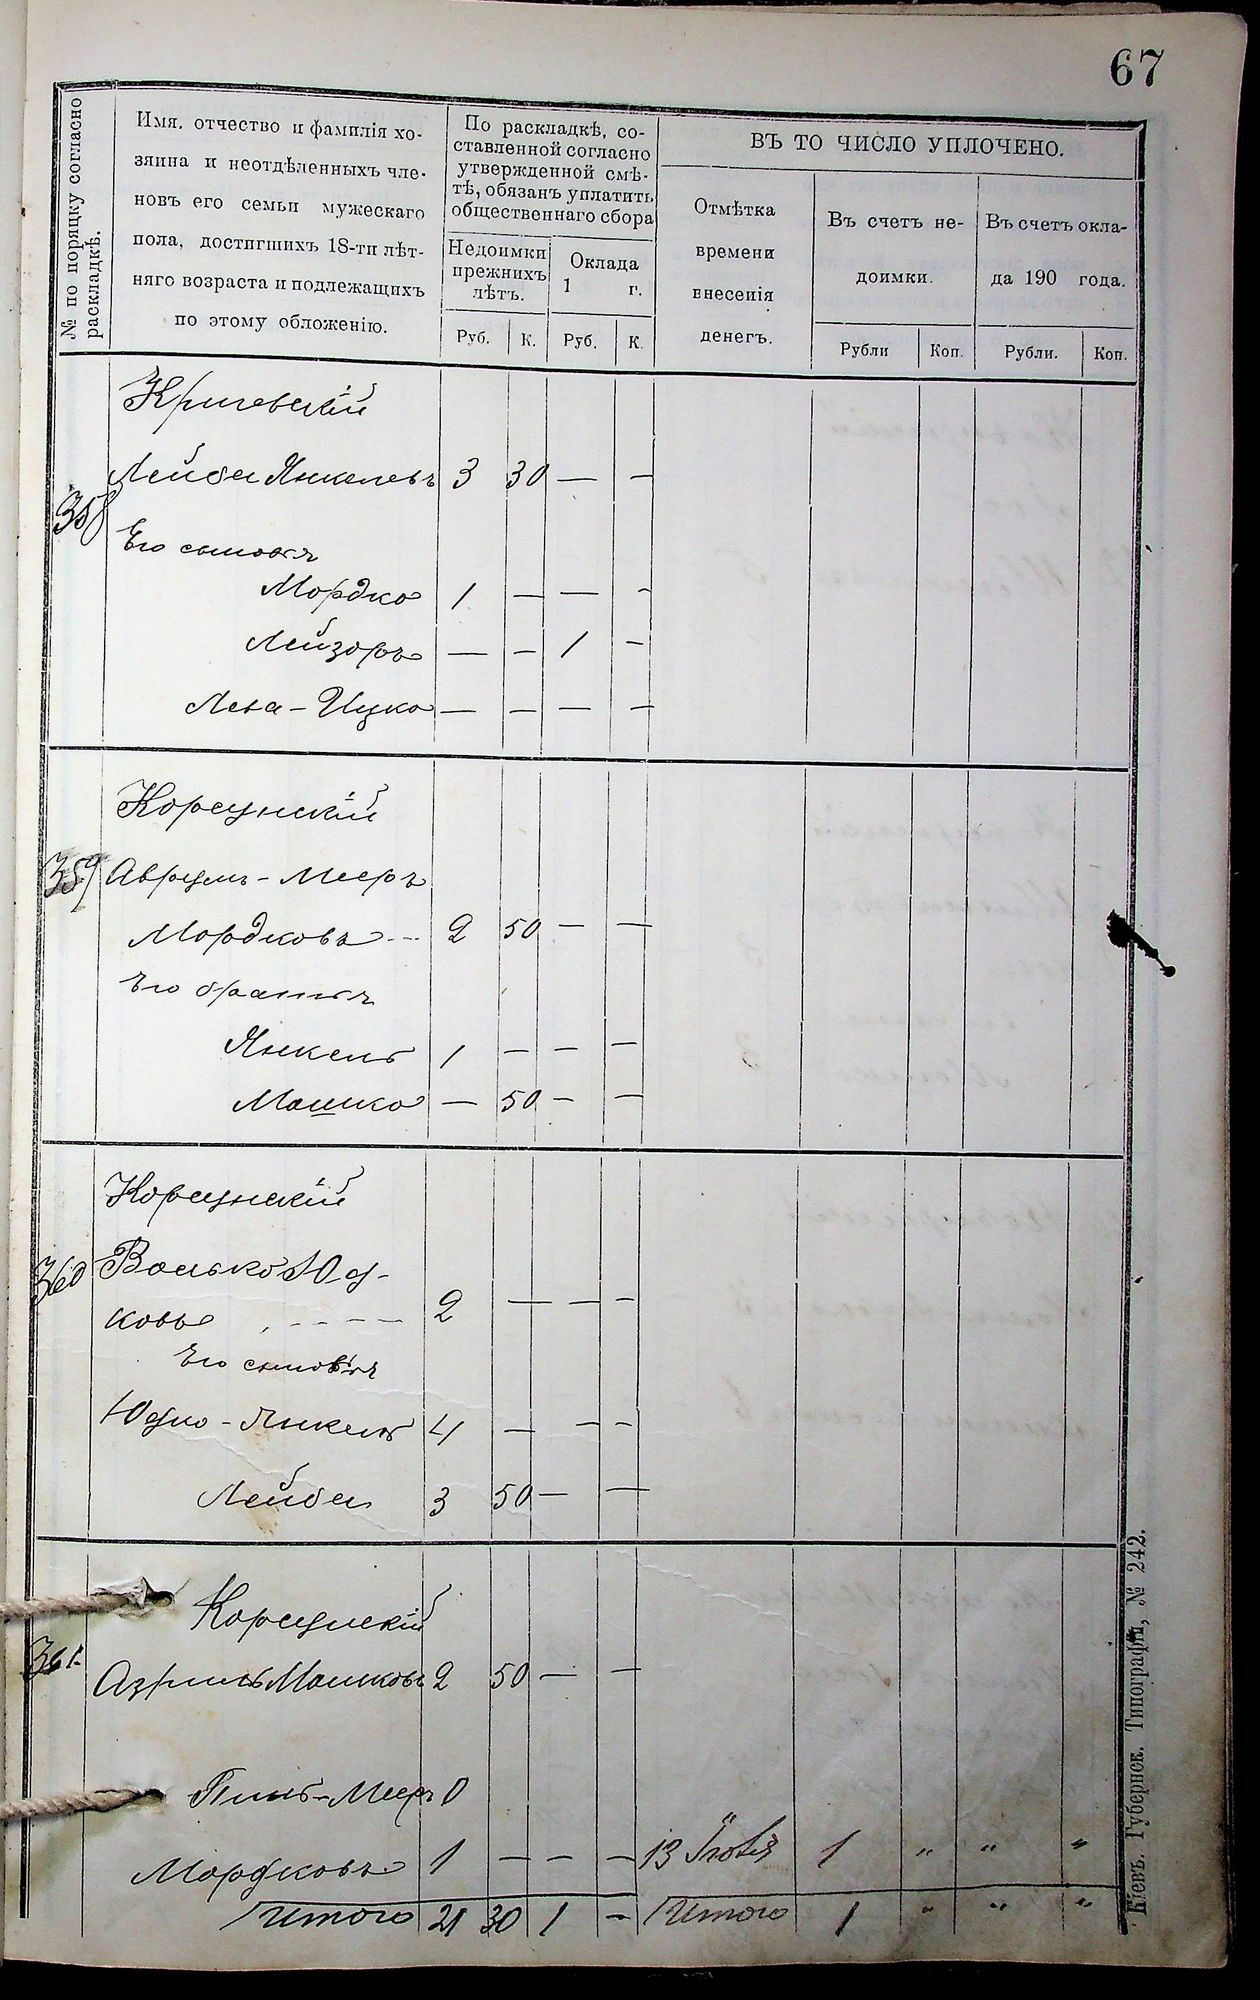 67
№ по порядку согласно раскладкѣ.
Имя, отчество и фамилія хо-
зяина и неотдѣленныхъ чле-
новъ его семьи мужескаго
пола, достигшихъ 18-ти лѣт-
няго возраста и подлежащихъ
по этому обложенію.
По раскладкѣ, со-
ставленной согласно
утвержденной смѣ-
тѣ, обязанъ уплатить
общественнаго сбора
Недоимки
прежнихъ
лѣтъ.
Оклада
1 г.
Руб. К. Руб. К.
ВЪ ТО ЧИСЛО УПЛОЧЕНО.
Отмѣтка
времени
внесенія
денегъ.
Въ счетъ не-
доимки.
Въ счетъ окла-
да 190 года.
Рубли Коп. Рубли. Коп.
Кричевскій
358 Лейба Янкелевъ 3 30 — —
Его сыновья
Мордко 1 — — -
Лейзоръ — - 1 -
Лева-Ицко — — — —
Корсунскій
359 Аврумъ-Мееръ
Мордковъ 2 50 — —
Его братья
Янкель 1 — — —
Мошко — 50 — —
Корсунскій
360 Волько Юд-
ковъ 2 — — —
Его сыновья
Юдко-Янкель 4 — — —
Лейба 3 50 — —
Корсунскій
361. Азриль Мошковъ 2 50 — —
Пинь-Мееръ
Мордковъ 1 — — — 13 1 " " "
Итого 21 30 1 — Итого 1 " " "
Кіевъ. Губернск. Типографія, № 242.